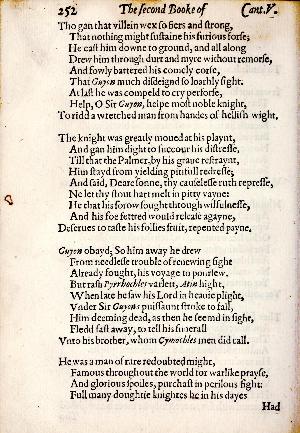 252 The second Booke of Cant.V.
Tho gan that villein wex so fiers and strong,
That nothing might sustaine his furious forse;
He cast him downe to ground, and all along
Drew him through durt and myre without remorse,
And fowly battered his comely corse,
That Guyon much disdeignd so loathly sight.
At last he was compeld to cry perforse,
Help, ô Sir Guyon, helpe most noble knight,
To ridd a wretched man from handes of hellish wight.
The knight was greatly moued at his playnt,
And gan him dight to succour his distresse,
Till that the Palmer, by his graue restraynt,
Him stayd from yielding pitifull redresse;
And said, Deare sonne, thy causelesse ruth represse,
Ne let thy stout hart melt in pitty vayne:
He that his sorow sought through wilfulnesse,
And his foe fettred would release agayne,
Deserues to taste his follies fruit, repented payne.
Guyon obayd; So him away he drew
From needlesse trouble of renewing fight
Already fought, his voyage to poursew.
But rash Pyrrhochles varlett, Atin hight,
When late he saw his Lord in heauie plight,
Vnder Sir Guyons puissaunt stroke to fall,
Him deeming dead, as then he seemd in sight,
Fledd fast away, to tell his funerall
Vnto his brother, whom Cymochles men did call.
He was a man of rare redoubted might,
Famous throughout the world for warlike prayse,
And glorious spoiles, purchast in perilous fight:
Full many doughtie knightes he in his dayes
Had